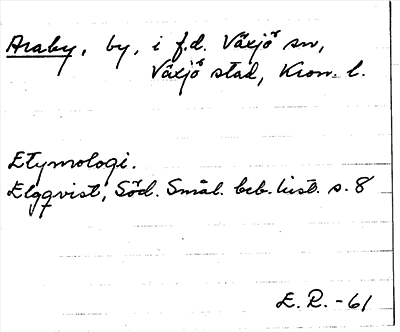 Araby, by, i f.d. Växjö sn,
Växjö stad, Kron. l.
Etymologi.
Elgqvist, Söd. Smål. beb.hist. s. 8
E. R. -61